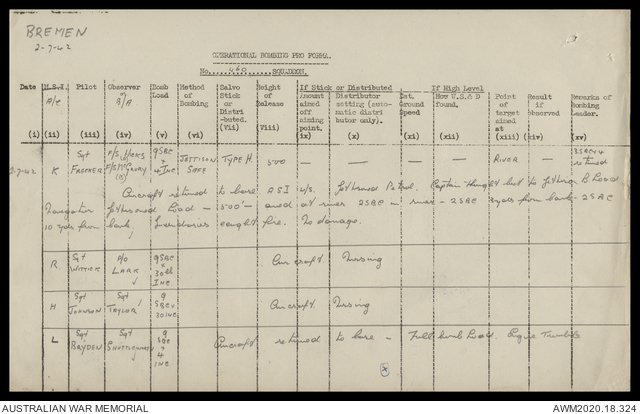 BREMEN
2-7-42
OPERATIONAL BOMBING PRO FORMA.
No. 460 SQUADRON.
Date M.S.I. Pilot Observer Bomb Method Salvo Height If Stick or Distributed If High Level Point Result Remarks of
A/C or Load of Stick of Amount Distributor Est. How U.S. & D of if Bombing
B/A Bombing or Release aimed setting (auto- Ground found. target observed Leader.
Distri off matic distri Speed aimed
-buted. aiming butor only). at
point.
(i) (ii) (iii) (iv) (v) (vi) (vii) (viii) ix) (x) (xi) (xii) (xiii) (xiv) (xv)
2-7-42 K Sgt FREEKER F/S 9 SBC 4 INC JETTISON SAFE TYPE H 500 — — — — RIVER — 3 SBC 4 returned
Aircraft returned to base ASI u/s. Jettisoned Petrol. Captain thought best to jettison B. Load.
Navigator jettisoned Load — 500' — at river 2 SBC — river — 2 SBC 3 yds from bank — 2 SBC
10 yds from bank. Incendiaries caught fire. No damage.
R Sgt WITTICK P/O LARK 9 SBC x 30 lb INC Aircraft Missing
H Sgt JOHNSON Sgt TAYLOR 9 SBC x 30 INC Aircraft Missing
L Sgt BRYDEN Sgt 9 SBC x 4 INC Aircraft returned to base — Full bomb load. Engine Trouble
AUSTRALIAN WAR MEMORIAL
AWM2020.18.324